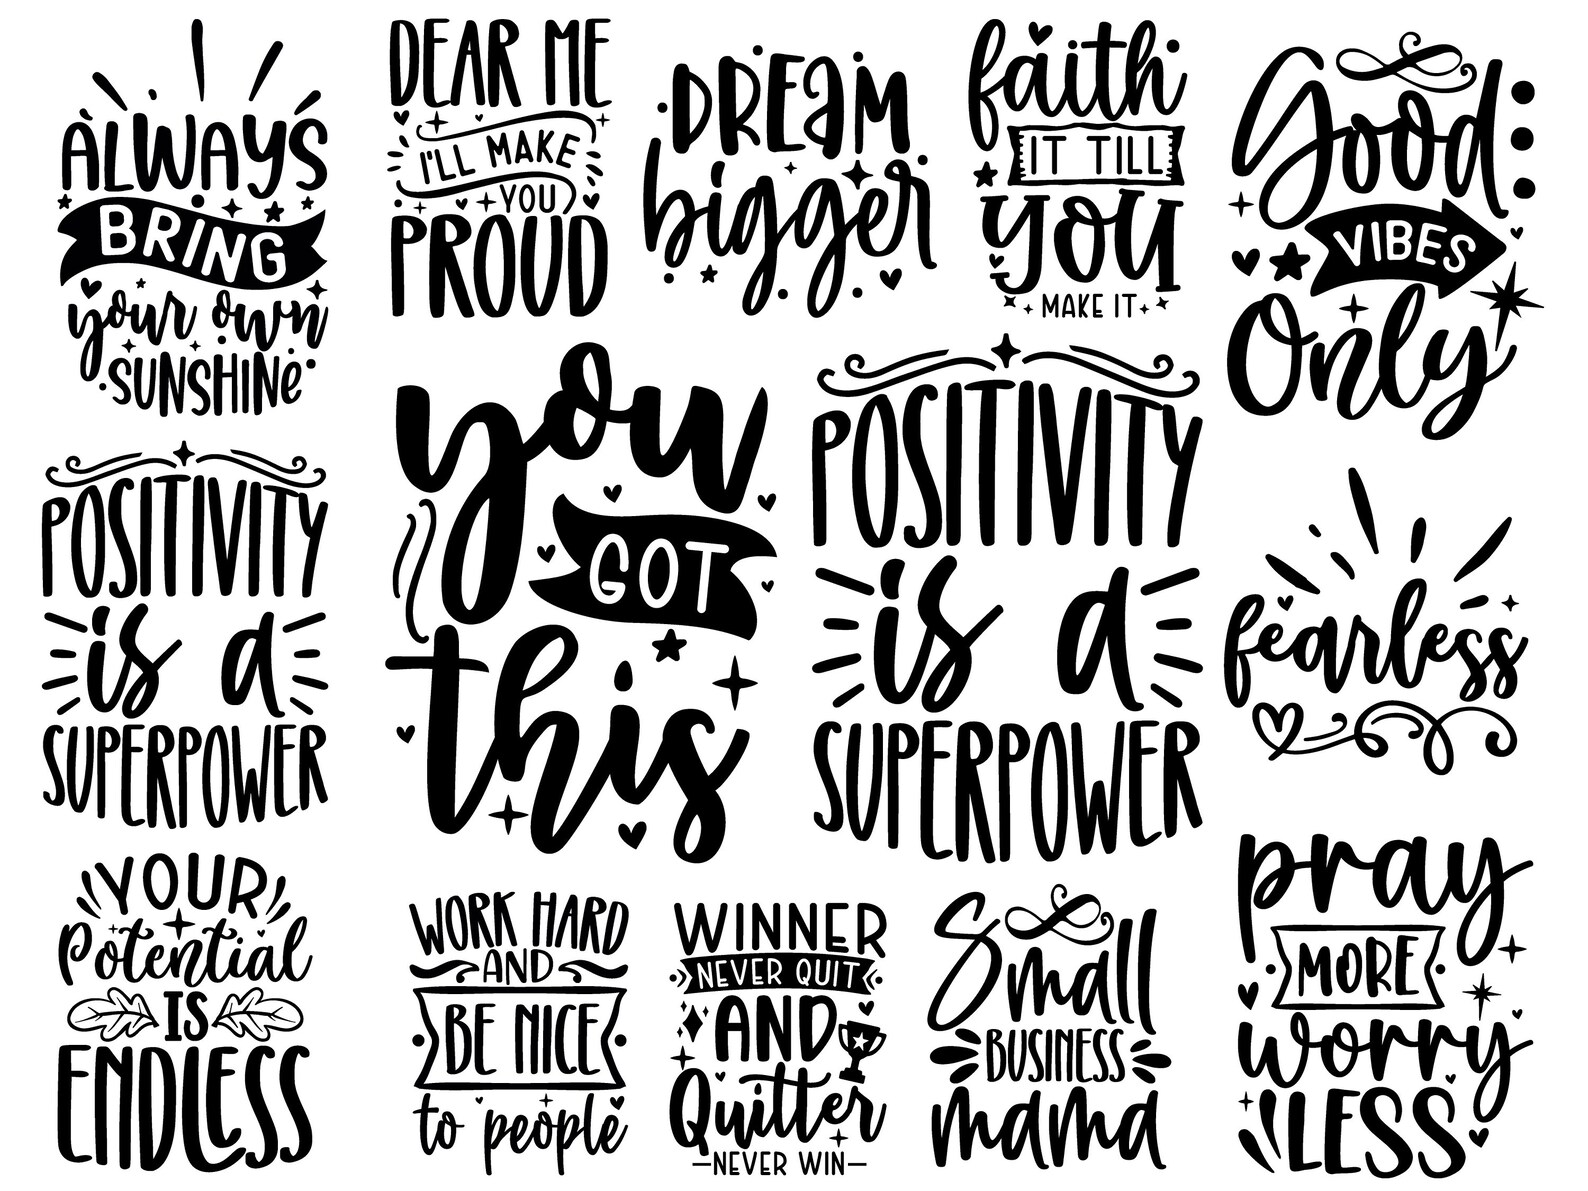 ALWAYS
BRING
your own
SUNSHINE
DEAR ME
I'LL MAKE
YOU
PROUD
DREAM
bigger
faith
IT TILL
you
MAKE IT
Good
VIBES
Only
POSITIVITY
is a
SUPERPOWER
you
GOT
this
POSITIVITY
is a
SUPERPOWER
fearless
YOUR
Potential
IS
ENDLESS
WORK HARD
AND
BE NICE
to people
WINNER
NEVER QUIT
AND
Quitter
NEVER WIN
Small
BUSINESS
mama
pray
MORE
worry
LESS